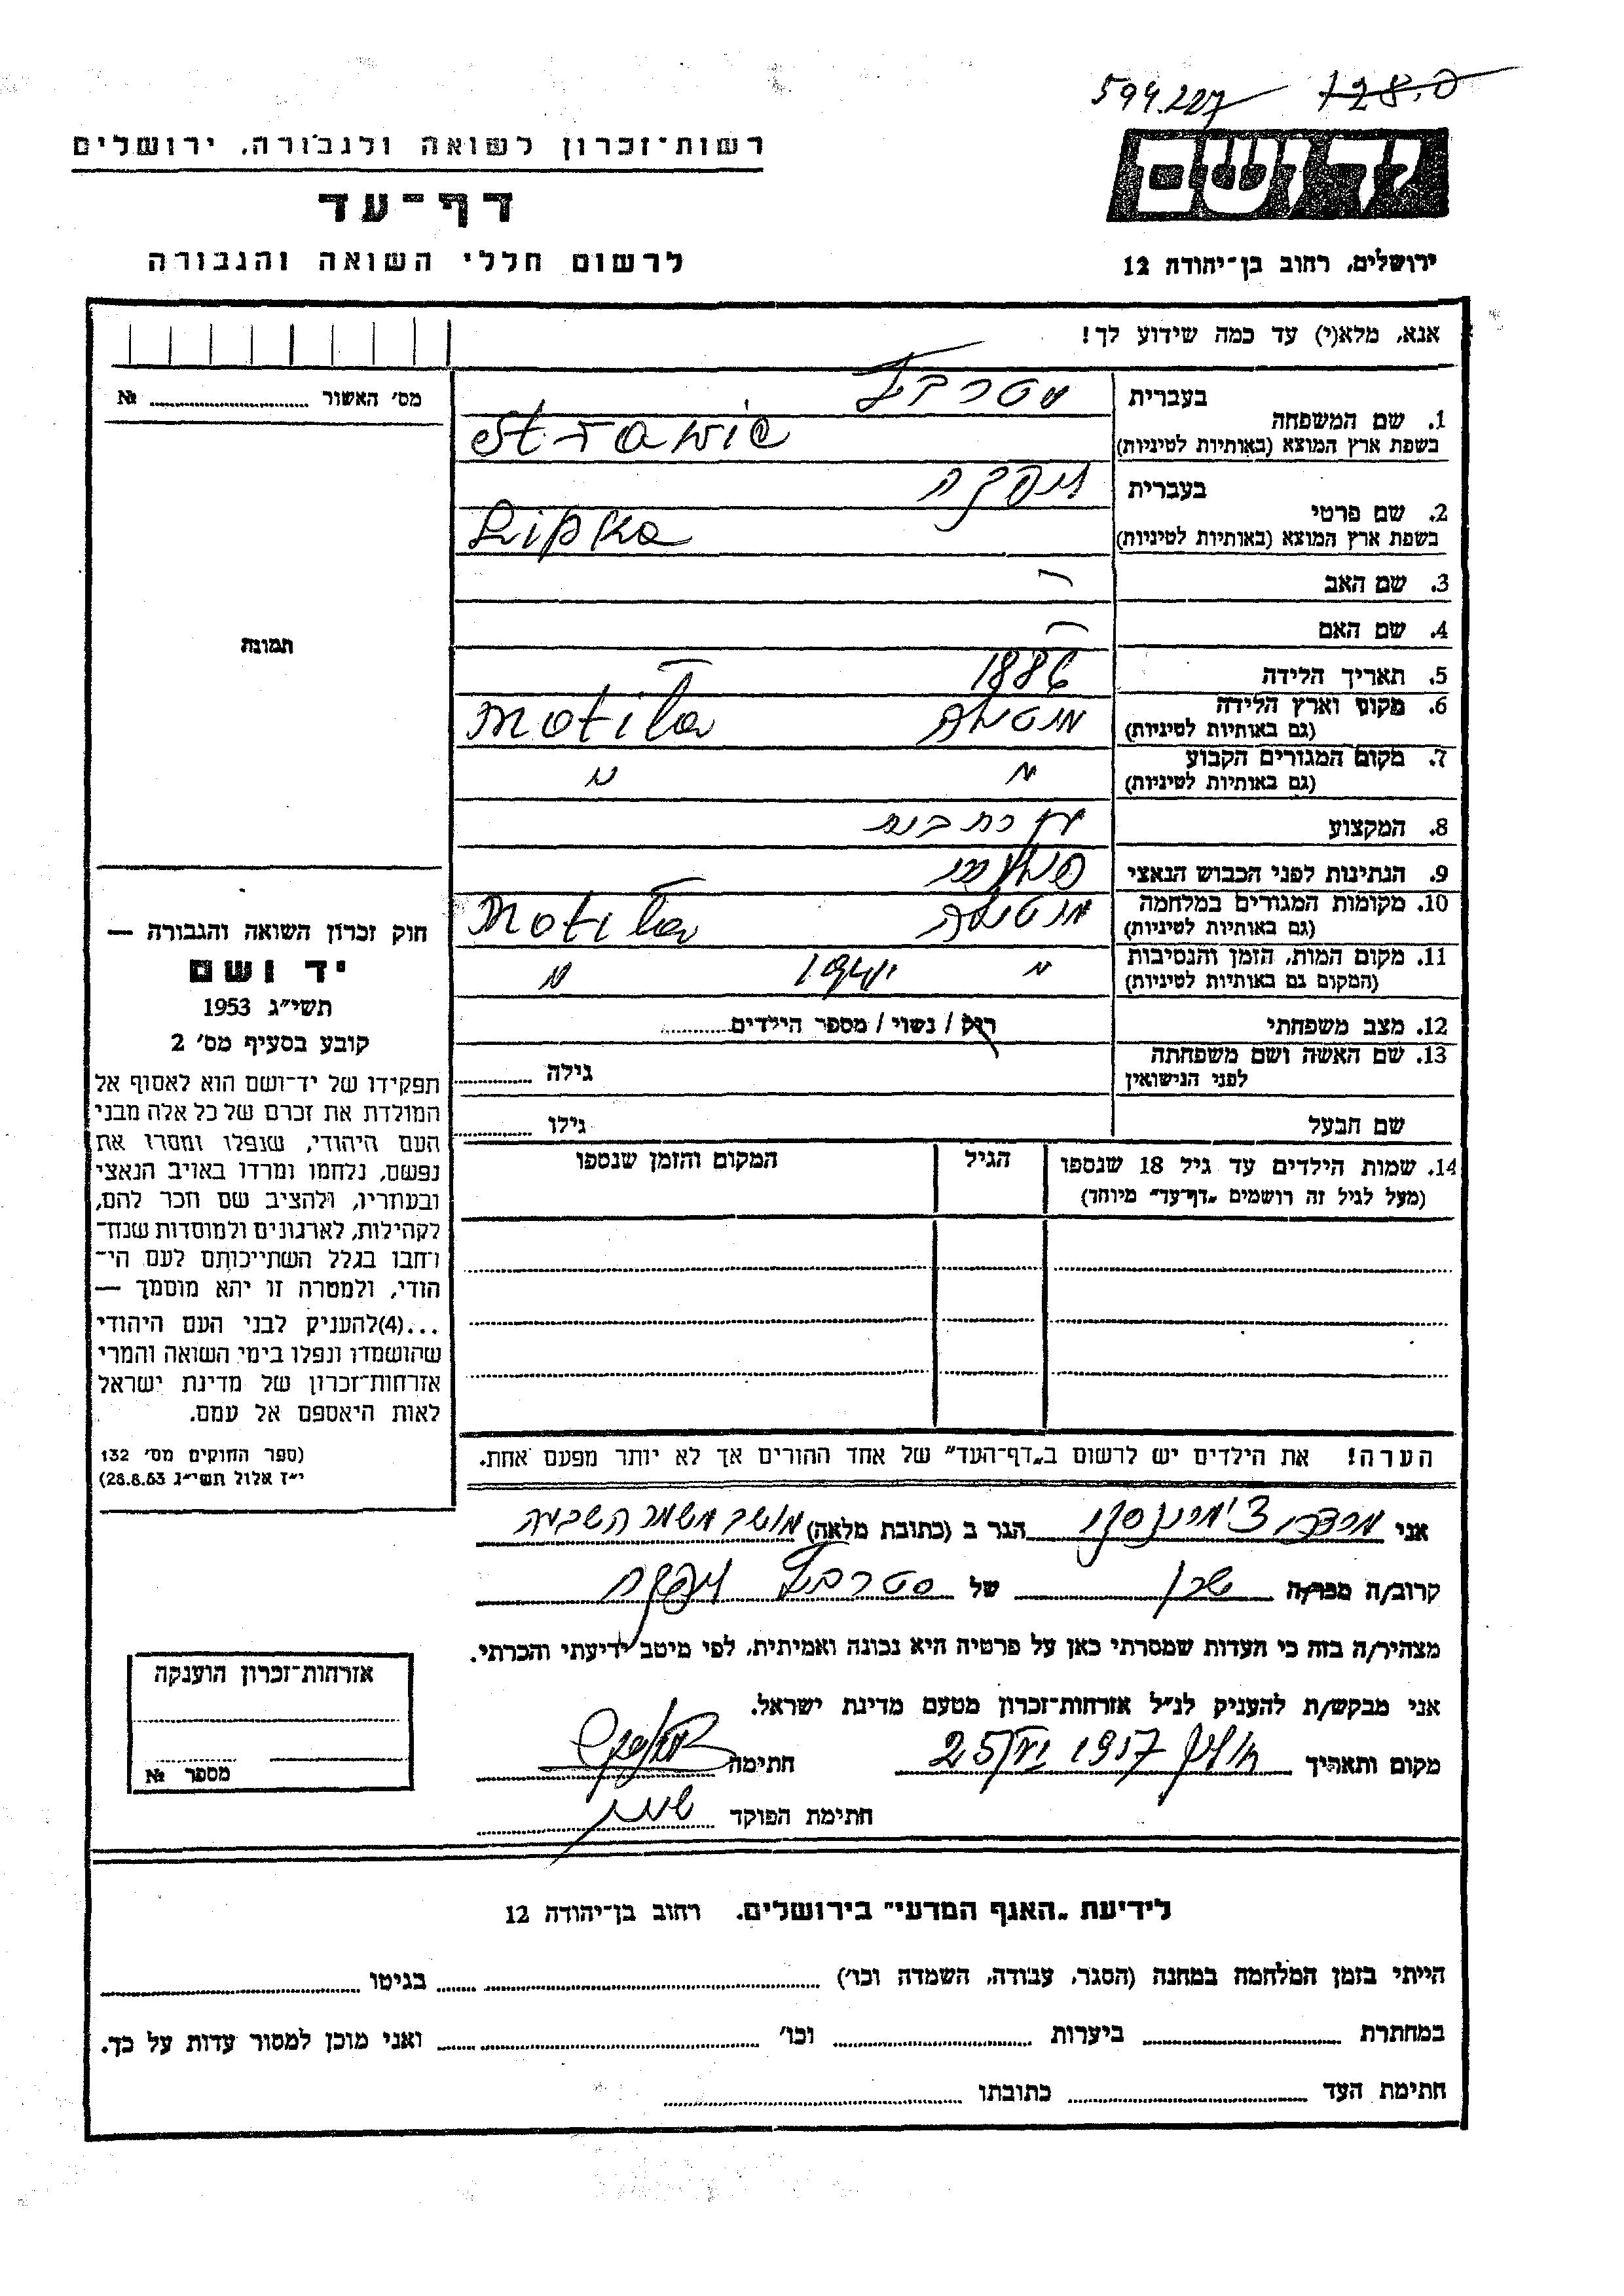 594.227 728.0
רשות־זכרון לשואה ולגבורה, ירושלים
יד ושם
דף־עד
לרשום חללי השואה והגבורה
ירושלים, רחוב בן־יהודה 12
אנא, מלא(י) עד כמה שידוע לך!
מס׳ האשור № 
1. שם המשפחה
בעברית
בשפת ארץ המוצא (באותיות לטיניות)
Strawic
2. שם פרטי
בעברית
בשפת ארץ המוצא (באותיות לטיניות)
Lipka
3. שם האב
4. שם האם
תמונה
5. תאריך הלידה 1886
6. מקום וארץ הלידה
(גם באותיות לטיניות)
מוטילה Motila
7. מקום המגורים הקבוע
(גם באותיות לטיניות)
" "
8. המקצוע
9. הנתינות לפני הכבוש הנאצי
10. מקומות המגורים במלחמה
(גם באותיות לטיניות)
מוטילה Motila
11. מקום המות, הזמן והנסיבות
(המקום גם באותיות לטיניות)
" 1941 "
12. מצב משפחתי רוק / נשוי / מספר הילדים
13. שם האשה ושם משפחתה
לפני הנישואין
גילה
שם הבעל גילו
14. שמות הילדים עד גיל 18 שנספו
(מעל לגיל זה רושמים „דף־עד” מיוחד)
הגיל
המקום והזמן שנספו
הערה! את הילדים יש לרשום ב„דף־העד” של אחד ההורים אך לא יותר מפעם אחת.
חוק זכרון השואה והגבורה —
יד ושם
תשי״ג 1953
קובע בסעיף מס׳ 2
תפקידו של יד־ושם הוא לאסוף אל
המולדת את זכרם של כל אלה מבני
העם היהודי, שנפלו ומסרו את
נפשם, נלחמו ומרדו באויב הנאצי
ובעוזריו, ולהציב שם וזכר להם,
לקהילות, לארגונים ולמוסדות שנח־
רבו בגלל השתייכותם לעם הי־
הודי, ולמטרה זו יהא מוסמך —
...(4)להעניק לבני העם היהודי
שהושמדו ונפלו בימי השואה והמרי
אזרחות־זכרון של מדינת ישראל
לאות היאספם אל עמם.
(ספר החוקים מס׳ 132
י״ז אלול תשי״ג 28.8.53)
אני מרדכי הגר ב (כתובת מלאה) מושב משמר השבעה
קרוב/ה מכר/ה שכן של
מצהיר/ה בזה כי העדות שמסרתי כאן על פרטיה היא נכונה ואמיתית, לפי מיטב ידיעתי והכרתי.
אני מבקש/ת להעניק לנ״ל אזרחות־זכרון מטעם מדינת ישראל.
מקום ותאריך 1957 25 חתימה
חתימת הפוקד
אזרחות־זכרון הוענקה
מספר №
לידיעת „האגף המדעי” בירושלים, רחוב בן־יהודה 12
הייתי בזמן המלחמה במחנה (הסגר, עבודה, השמדה וכו׳) בגיטו
במחתרת ביערות וכו׳ ואני מוכן למסור עדות על כך.
חתימת העד כתובתו